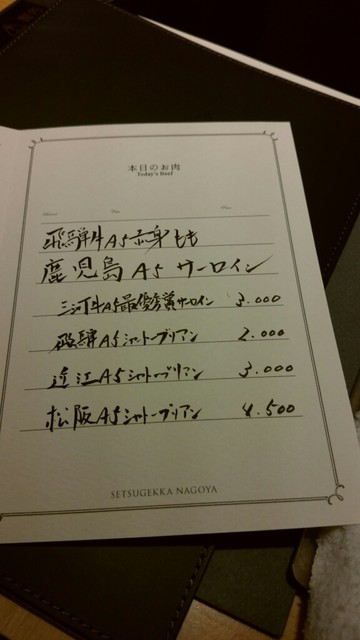 本日のお肉
Today's Beef
飛騨牛A5赤身もも
鹿児島A5サーロイン
三河牛A5最優秀賞サーロイン 3.000
飛騨A5シャトーブリアン 2.000
近江A5シャトーブリアン 3.000
松阪A5シャトーブリアン 4.500
SETSUGEKKA NAGOYA